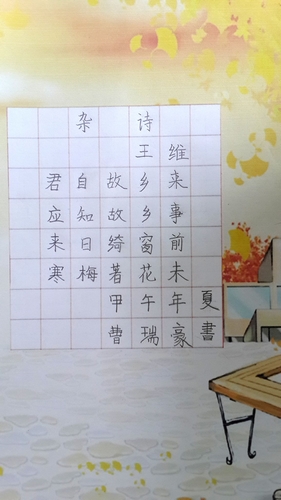 杂诗
王维
君自故乡来
应知故乡事
来日绮窗前
寒梅著花未
甲午年夏
曹瑞豪書